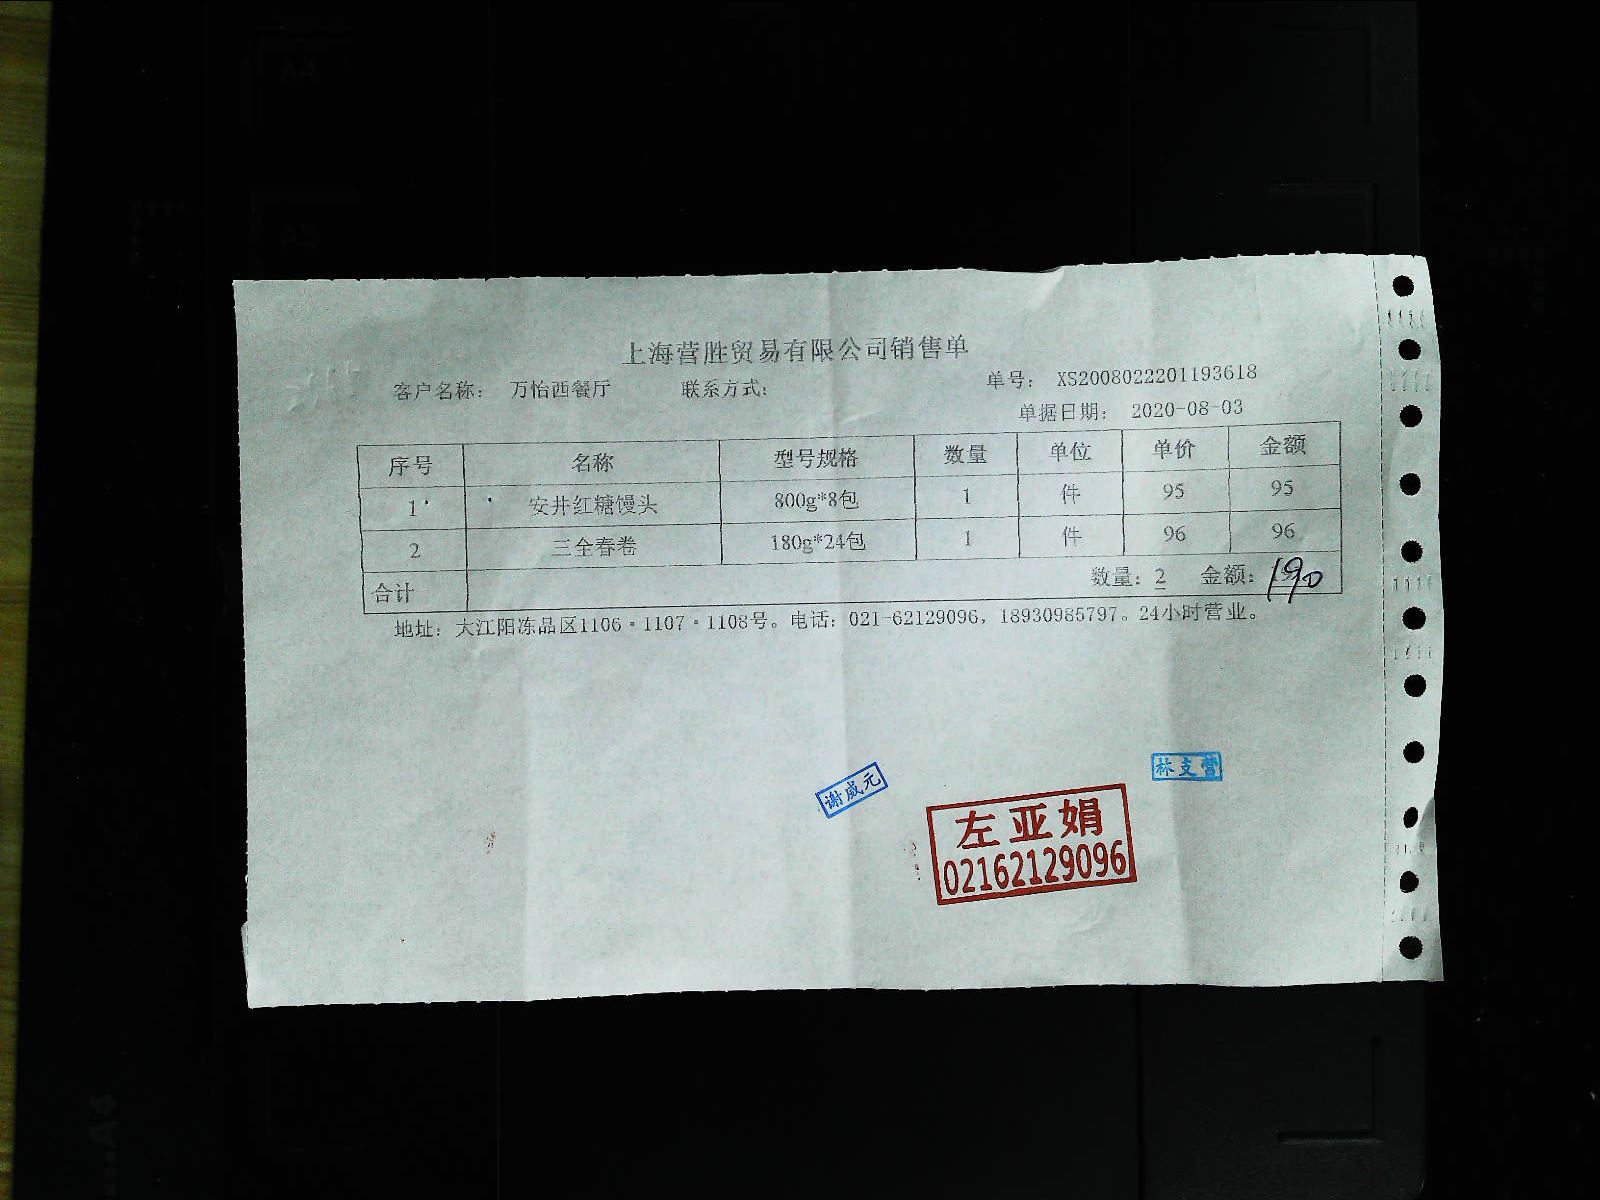 上海营胜贸易有限公司销售单
客户名称： 万怡西餐厅 联系方式: 单号： XS2008022201193618
单据日期： 2020-08-03
序号 名称 型号规格 数量 单位 单价 金额
1 安井红糖馒头 800g*8包 1 件 95 95
2 三全春卷 180g*24包 1 件 96 96
合计 数量: 2 金额: 190
地址: 大江阳冻品区1106·1107·1108号。电话: 021-62129096, 18930985797。24小时营业。
谢威元
林支营
左亚娟
02162129096
A4
A5
A4